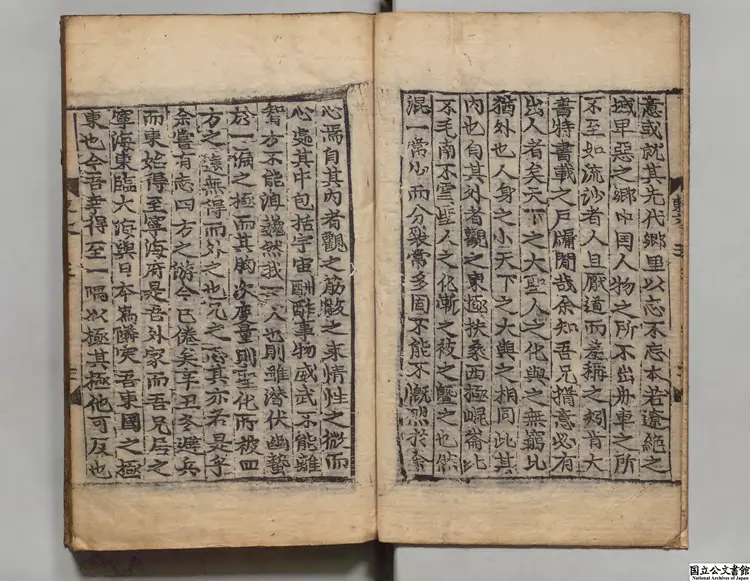 意或就其先代鄉里以志不忘本若遼絶之
域卑惡之鄉中国人物之所不出舟車之所
不至如流沙者人且厭道而羞稱之矧肯大
書特書載之戶牖間哉余知吾兄措意必有
出人者矣天下之大聖人之化與之無窮比
猶外也人身之小天下之大與之相同此其
內也自其外者觀之東極扶桑西極崐崙北
不毛南不雪聖人之化漸之被之曁之也然
混一常少而分裂常多固不能不慨然於余
心焉自其內者觀之筋骸之束情性之微而
心處其中包括宇宙酬酢事物威武不能離
智力不能沮巍然我一人也則雖潜伏幽蟄
於一偏之極而其胸次度量則聖化所被四
方之遠無得而外之也沉之志其亦若是乎
余嘗有志四方之游今已倦矣辛丑冬避兵
而東始得至寧海府是吾外家而吾兄居之
寧海東臨大海與日本爲隣實吾東國之極
東也今吾幸得至一隅以極其極他可反也
国立公文書館
National Archives of Japan